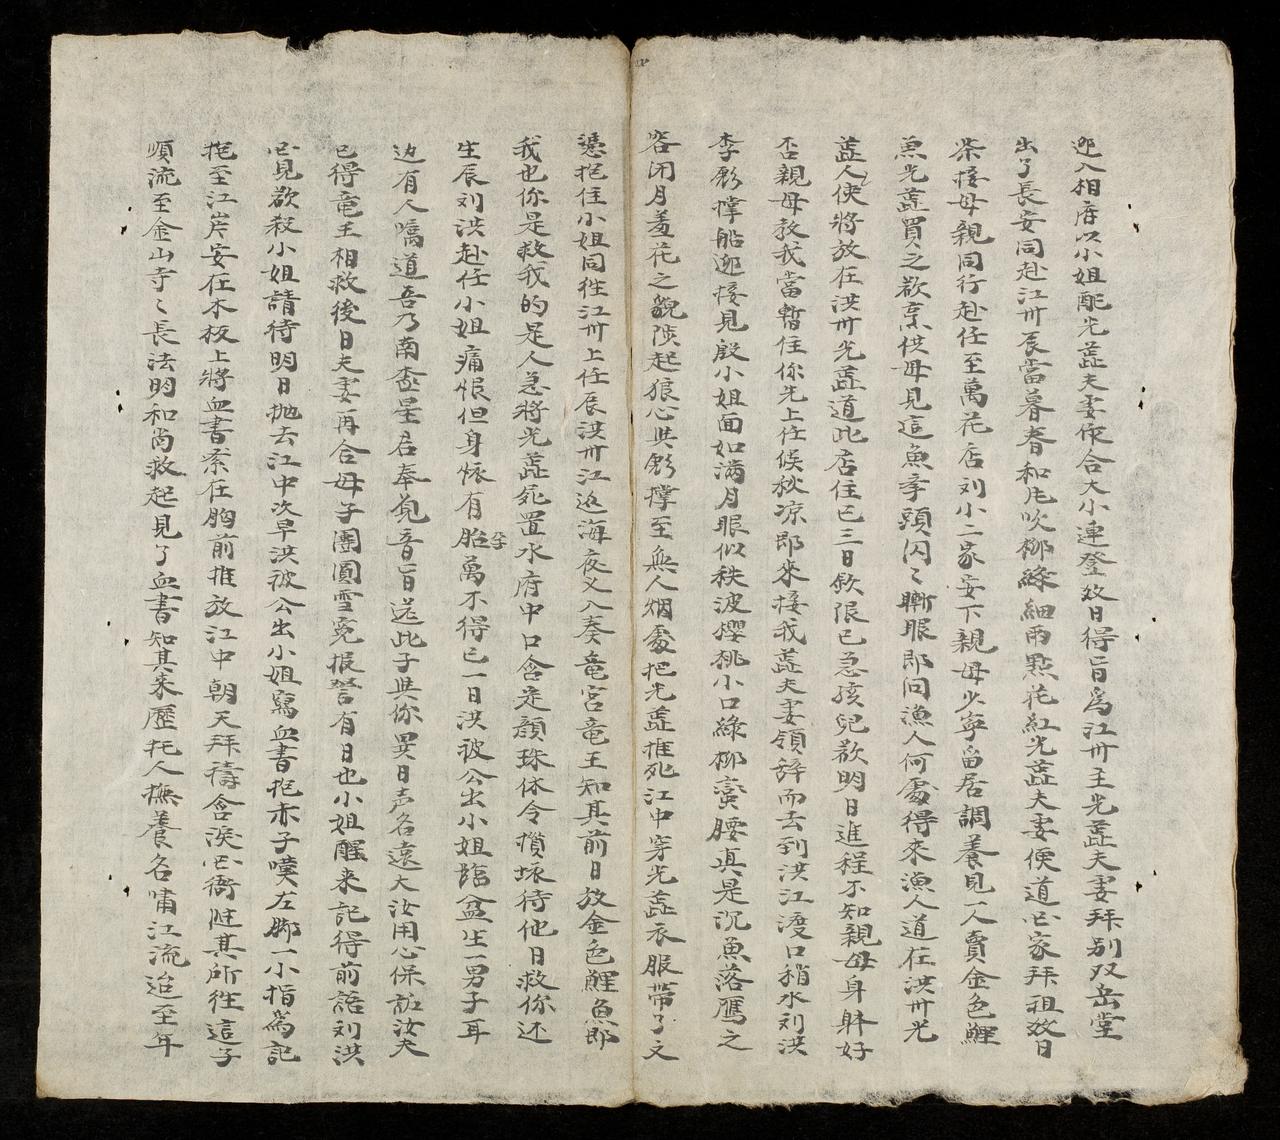 迎入相府以小姐配光蕋夫妻作合大小連登效日得旨為江卅主光蕋夫妻拜別双岳堂
出了長安同赴江卅辰當暮春和風吹柳綠細雨點花紅光蕋夫妻便道回家拜祖效日
柴接母親同行赴任至萬花店刘小二家安下親母少寧留居調養見一人賣金色鯉
魚光蕋買之欲烹供母見這魚字頭閃〻斬眼即问漁人何處得來漁人道在洪卅光
蕋人使將放在洪卅光蕋道此居住已三日欽限已急孩兒欲明日進程不知親母身躰好
否親母教我當暫住你先上任候秋凉即來接我蕋夫妻領辞而去到洪江渡口稍水刘洪
李彪撑船迎接見殷小姐面如滿月眼似秋波櫻桃小口綠柳蛮腰真是沉魚落鴈之
容闭月羞花之貌陟起狼心共彪撑至無人烟處把光蕋推死江中穿光蕋衣服帶了文
憑抱住小姐同徃江卅上任辰洪卅江巡海夜乂入奏竜宮竜王知其前日放金色鯉魚即
我也你是救我的是人急將光蕋屍置水府中口含定顔珠休令損壞待他日救你还
生辰刘洪赴任小姐痛恨但身怀有胎孕萬不得已一日洪被公出小姐臨盆生一男子耳
边有人嘱道吾乃南極星君奉覌音旨送此子與你異日声名遠大汝用心保䕶汝夫
已得竜王相救後日夫妻再合母子團圓雪冤报讐有日也小姐醒来記得前語刘洪
回見欲殺小姐請待明日抛去江中次早洪被公出小姐寫血書抱赤子嘆左脚一小指為記
抱至江岸安在木板上將血書系在胸前推放江中朝天拜禱含淚回衙隨其所徃這子
順流至金山寺〻長法明和尚救起見了血書知其来歷托人撫養名喚江流迨至年